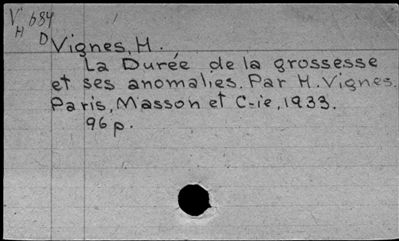 V 684
H D
Vignes, H.
La Durée de la grossesse
et ses anomalies. Par H. Vignes.
Paris, Masson et C-ie, 1933.
96 p.